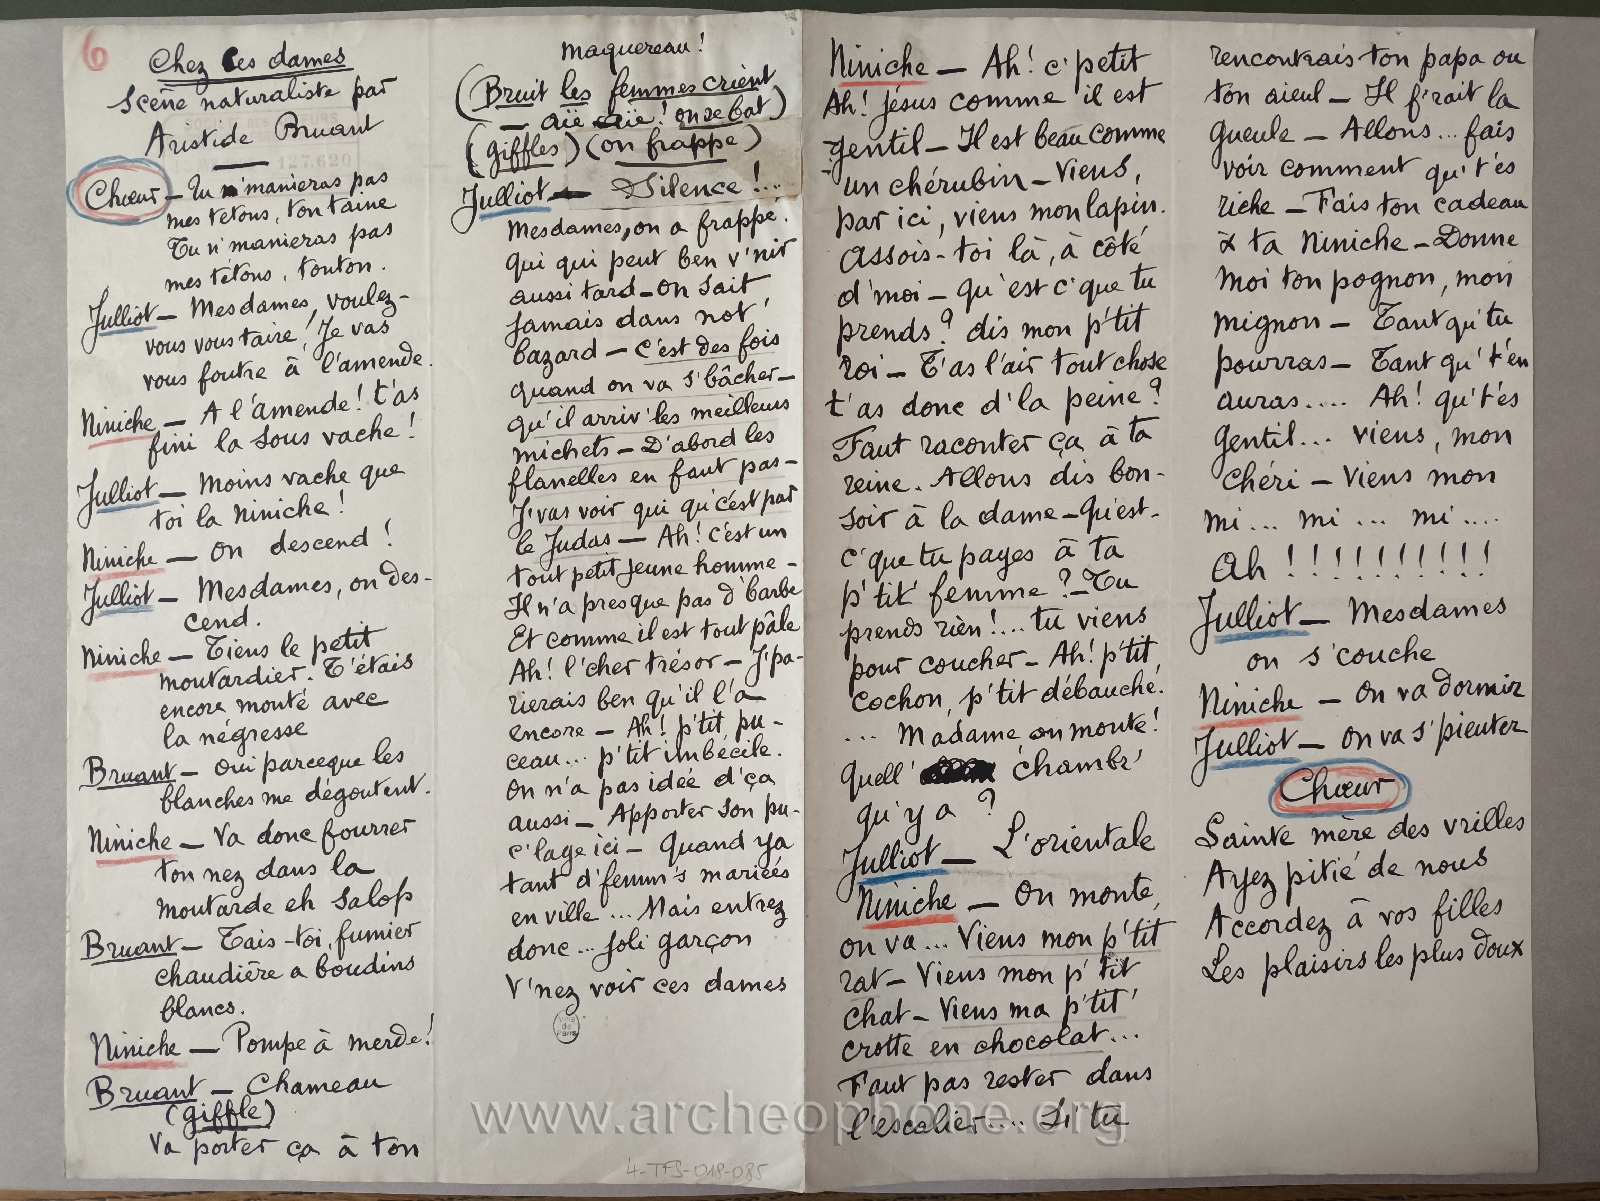 6
Chez ces dames
Scène naturaliste par
Aristide Bruant
127.620
Chœur — Tu n'manieras pas
mes tétons, tontaine
Tu n'manieras pas
mes tétons, tonton.
Julliot — Mesdames, voulez-
vous vous taire! Je vas
vous foutre à l'amende.
Niniche — A l'amende! t'as
fini la sous vache!
Julliot — Moins vache que
toi la Niniche!
Niniche — On descend!
Julliot — Mesdames, on des-
cend.
Niniche — Tiens le petit
moutardier. T'étais
encore monté avec
la négresse
Bruant — Oui parceque les
blanches me dégoutent.
Niniche — Va donc fourrer
ton nez dans la
moutarde eh salop
Bruant — Tais-toi, fumier
chaudière a boudins
blancs.
Niniche — Pompe à merde!
Bruant — Chameau
(giffle)
Va porter ça à ton
maquereau!
(Bruit les femmes crient
— aïe aïe! on se bat)
(giffles) (on frappe)
Julliot — Silence!...
Mesdames, on a frappé.
Qui qui peut ben v'nir
aussi tard — On sait
jamais dans not'
bazard — c'est des fois
quand on va s'bâcher —
qu'il arriv' les meilleurs
michets — D'abord les
flanelles en faut pas —
J'vas voir qui qu'c'est par
le Judas — Ah! c'est un
tout petit jeune homme —
Il n'a presque pas d'barbe
Et comme il est tout pâle
Ah! l'cher trésor — J'pa-
rierais ben qu'il l'a
encore — Ah! p'tit pu-
ceau... p'tit imbécile.
On n'a pas idée d'ça
aussi — Apporter son pu-
c'lage ici — Quand ya
tant d'femm's mariées
en ville... Mais entrez
donc... Joli garçon
V'nez voir ces dames
Ville
de
Paris
Niniche — Ah! c'petit
Ah! Jésus comme il est
gentil — Il est beau comme
un chérubin — Viens,
par ici, viens mon lapin.
Assois-toi là, à côté
d'moi — qu'est c'que tu
prends? dis mon p'tit
roi — T'as l'air tout chose
t'as donc d'la peine?
Faut raconter ça à ta
reine. Allons dis bon-
soir à la dame — Qu'est-
c'que tu payes à ta
p'tit' femme? — Tu
prends rien!... tu viens
pour coucher — Ah! p'tit
cochon, p'tit débauché.
... Madame, on monte!
Quell' chambr'
qu'y a?
Julliot — L'orientale
Niniche — On monte,
on va... Viens mon p'tit
rat — Viens mon p'tit
chat — Viens ma p'tit'
crotte en chocolat...
Faut pas rester dans
l'escalier.... Si tu
rencontrais ton papa ou
ton aïeul — Il f'rait la
gueule — Allons... fais
voir comment qu't'es
riche — Fais ton cadeau
à ta Niniche — Donne
moi ton pognon, mon
mignon — Tant qu'tu
pourras — Tant qu't'en
auras.... Ah! qu't'es
gentil... viens, mon
chéri — Viens mon
mi... mi... mi....
Ah!!!!!!!!!!
Julliot — Mesdames
on s'couche
Niniche — On va dormir
Julliot — On va s'pieuter
Chœur
Sainte mère des vrilles
Ayez pitié de nous
Accordez à vos filles
Les plaisirs les plus doux
www.archeophone.org
4-TFS-018-085